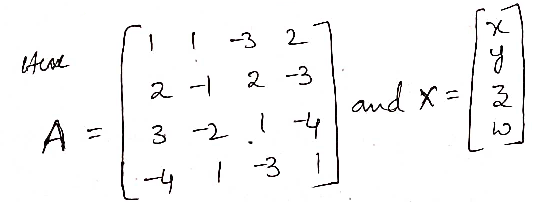 Here
A = [ 1 1 -3 2
2 -1 2 -3
3 -2 1 -4
-4 1 -3 1 ] and X = [ x
y
z
w ]